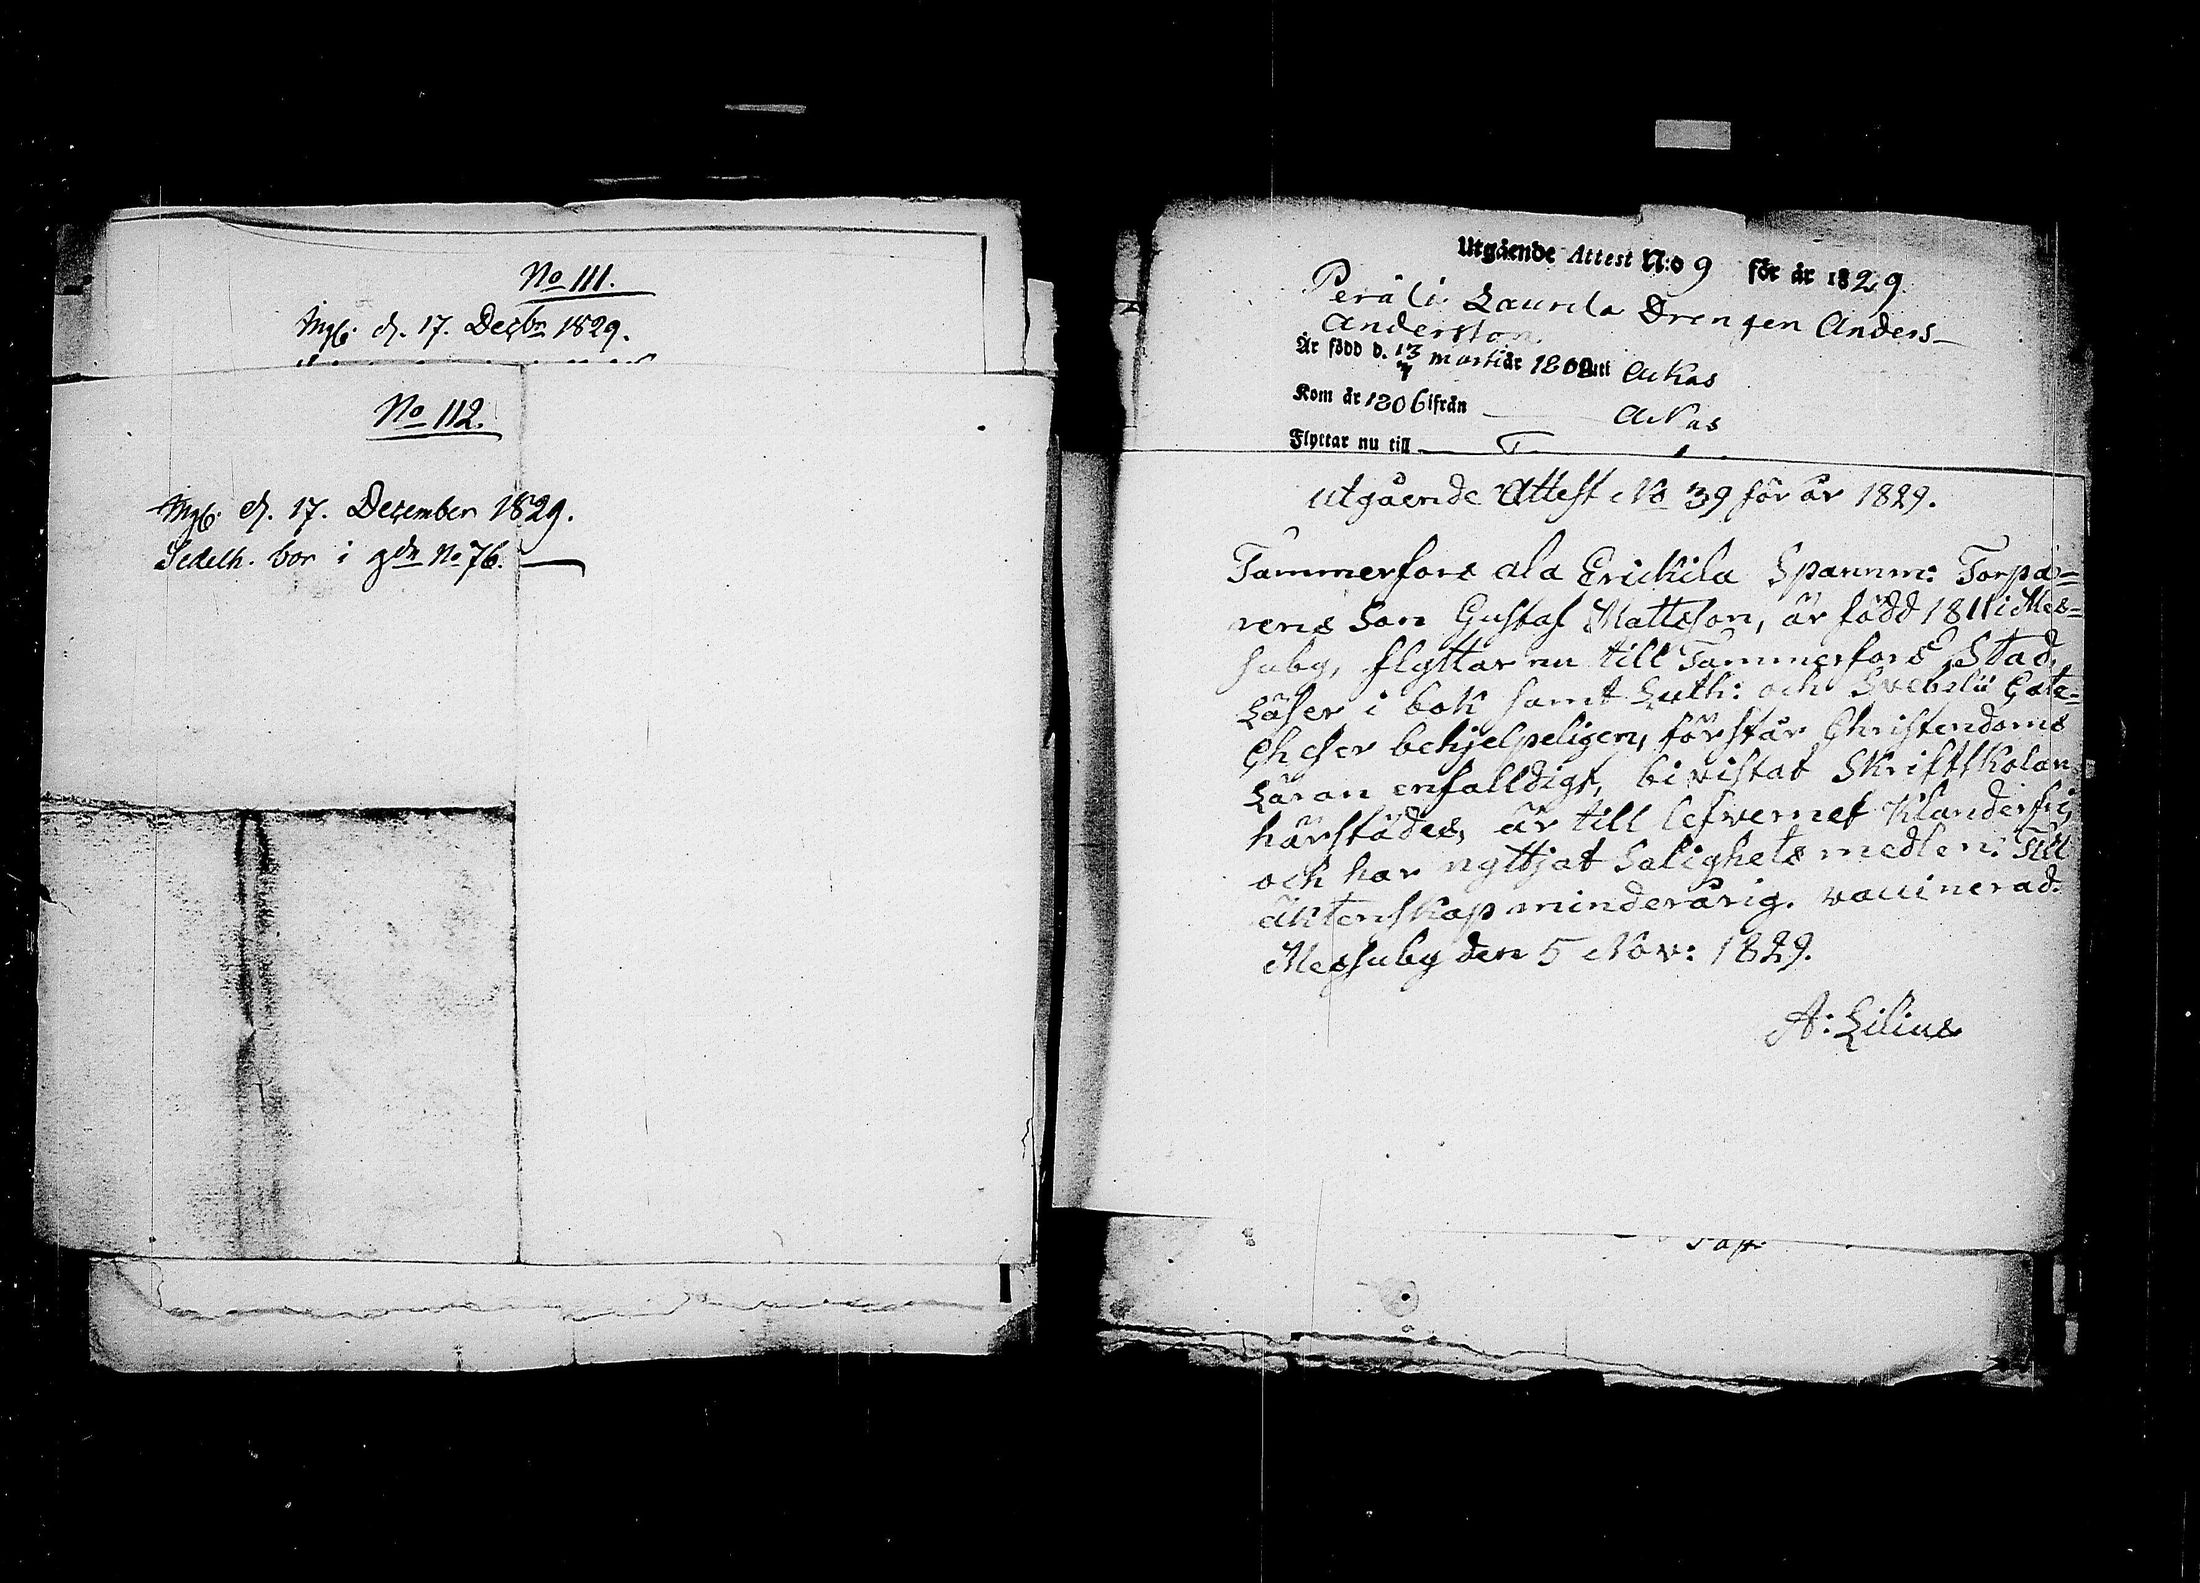 No 111.
Mgb. d. 17. Decbr 1829.
No 112.
Mgb. d. 17. December 1829.
Sedelh. bor i gdn No 76.
Utgående Attest N:o 9 för år 1829.
Peräli Laurila Drengen Anders
Andersson
Är född d. 13 Marti år 1802 uti Ackas
Kom år 1806 ifrån Ackas
Flyttar nu till
Utgående Attest No 39 för år 1829.
Tammerfors ala Erickila Spannm: Torpa=
rens Son Gustaf Mattsson, är född 1811 i Mes=
suby, flyttar nu till Tammerfors Stad,
Läser i bok samt Luth: och Svebelii Cate=
cheser behjelpeligen, förstår Christendoms
Läran enfalldigt, bivistat Skriftskolan
härstädes, är till lefvernet Klanderfri,
och har nyttjat Salighets medlen: Till
äktenskap minderårig. vaccinerad.
Messuby den 5 Nov: 1829.
A: Lilius